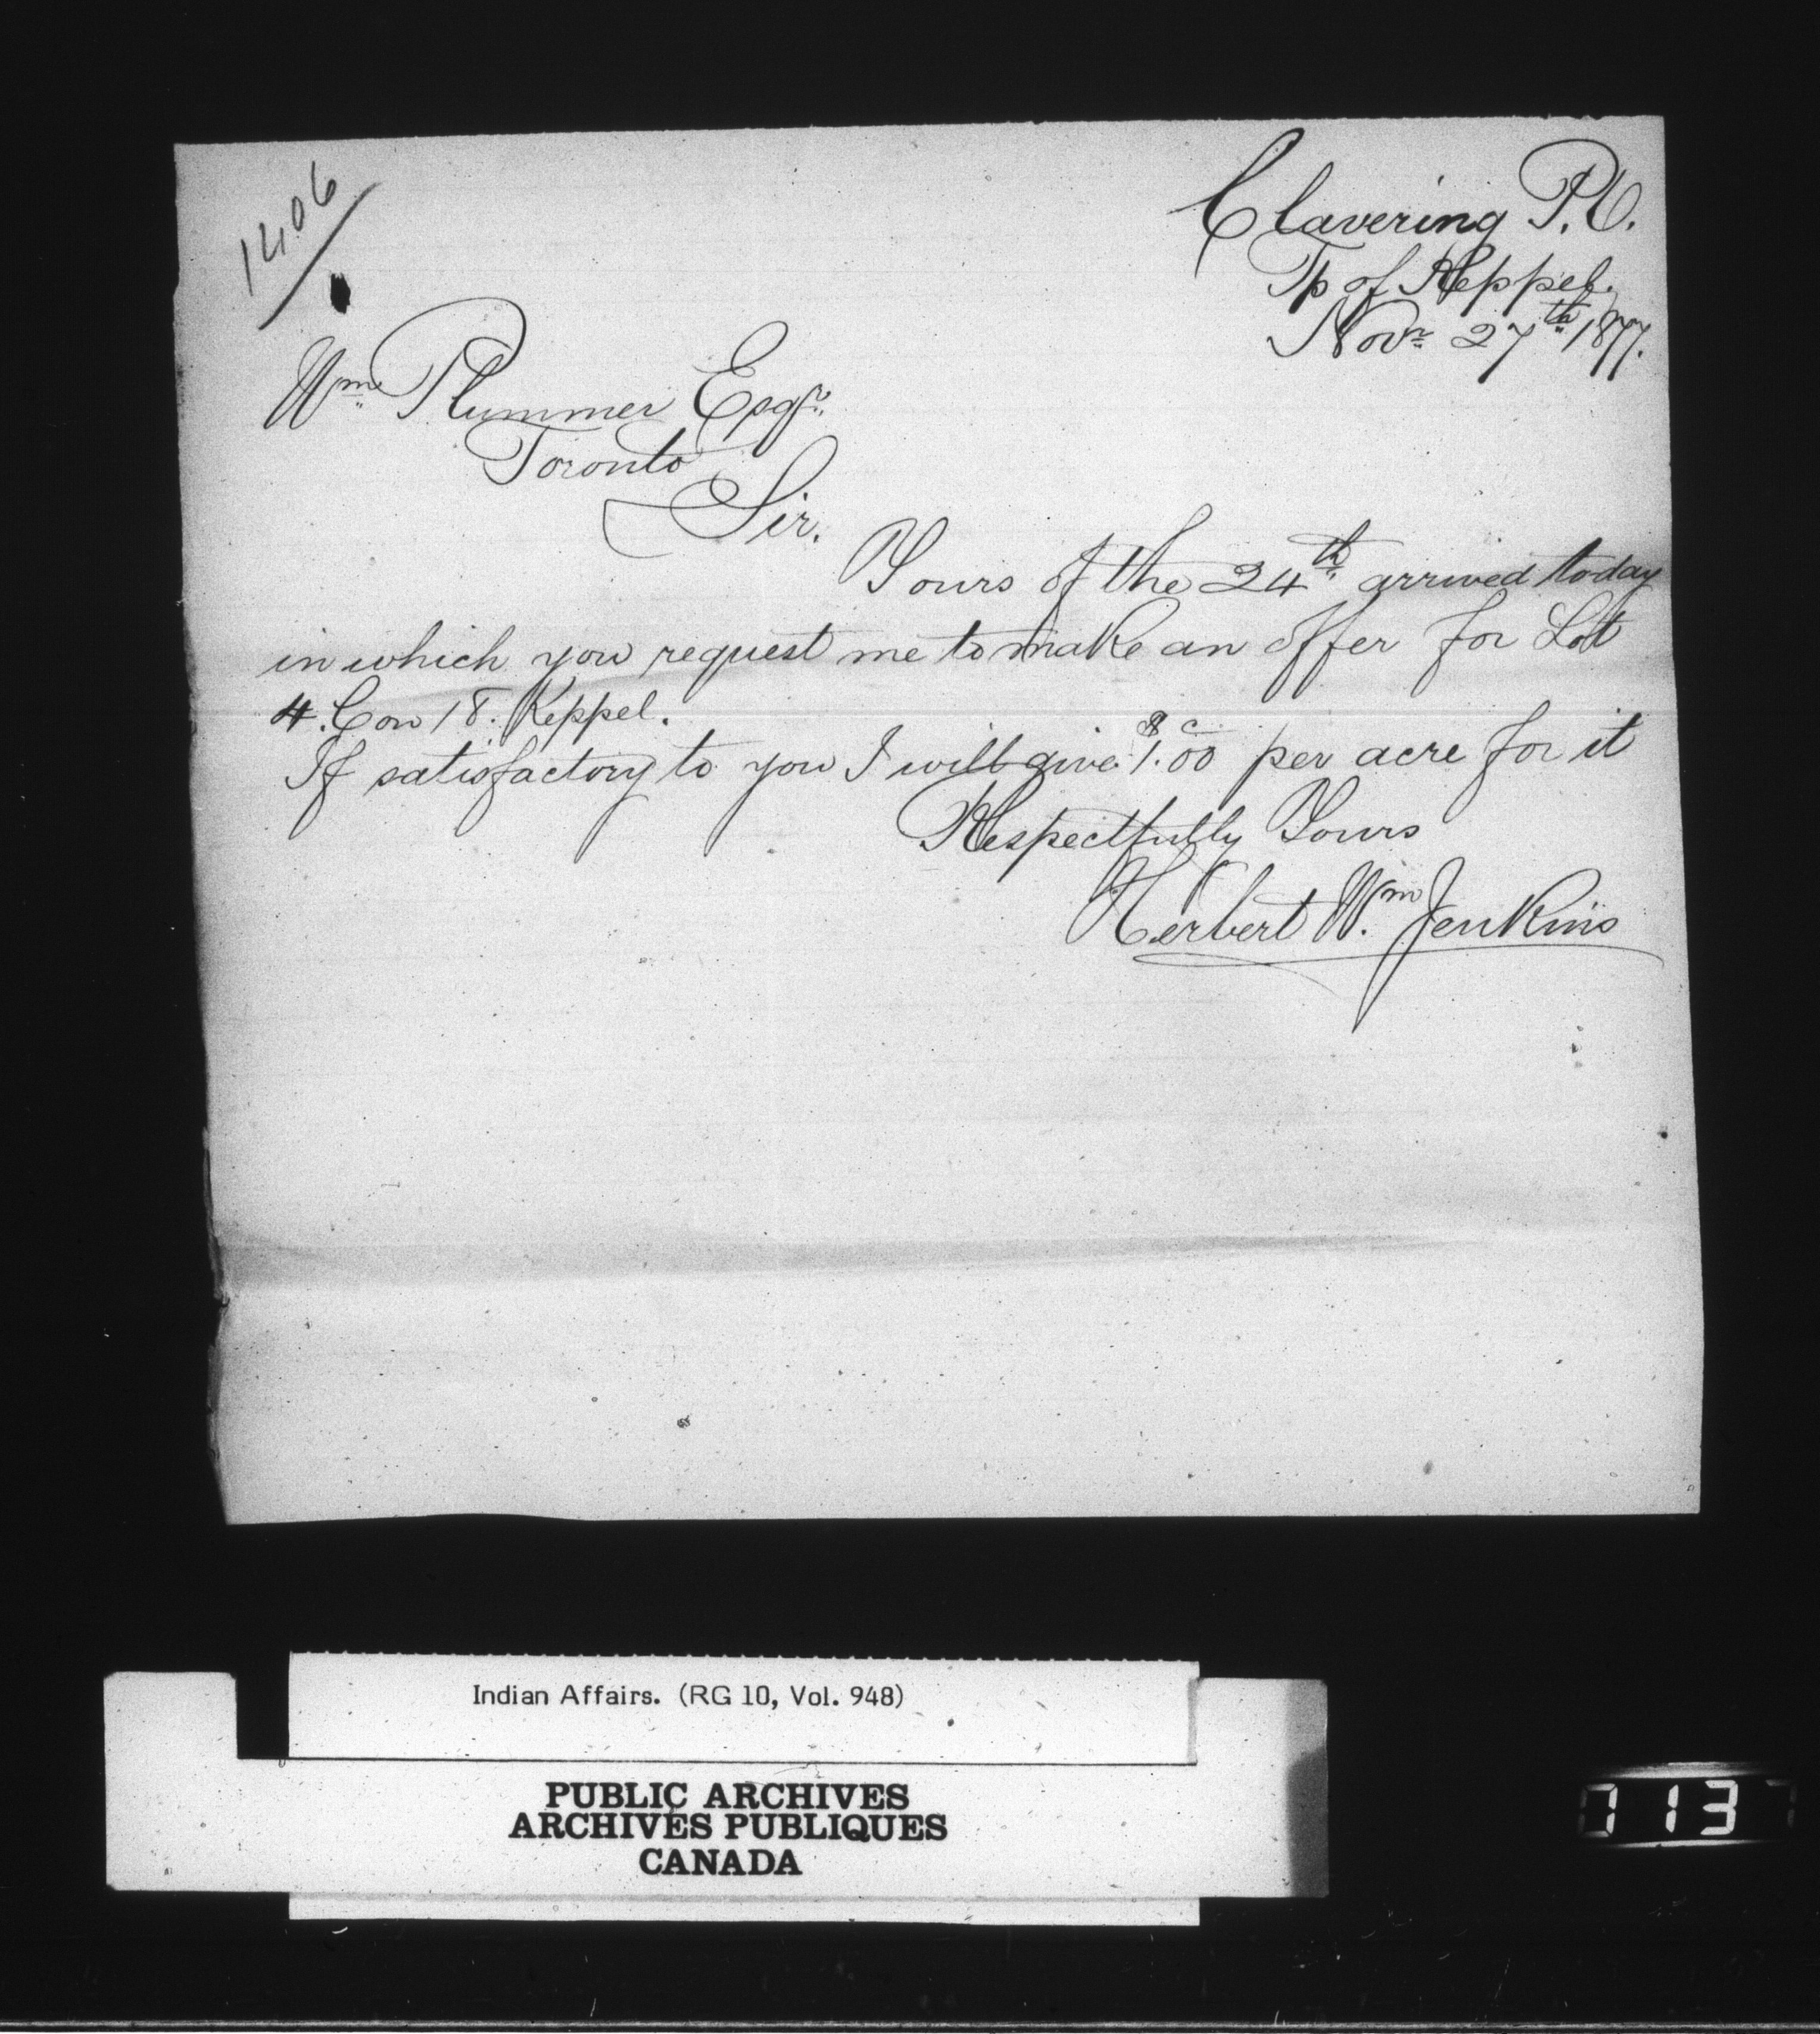 1406
Clavering P.O.
Tp of Keppel.
Novr 27th 1877.
Wm Plummer Esqr.
Toronto
Sir.
Yours of the 24th arrived today
in which you request me to make an offer for Lot
4. Con 18. Keppel.
If satisfactory to you I will give $1.00c per acre for it
Respectfully Yours
Herbert Wm Jenkins
Indian Affairs. (RG 10, Vol. 948)
PUBLIC ARCHIVES
ARCHIVES PUBLIQUES
CANADA
113